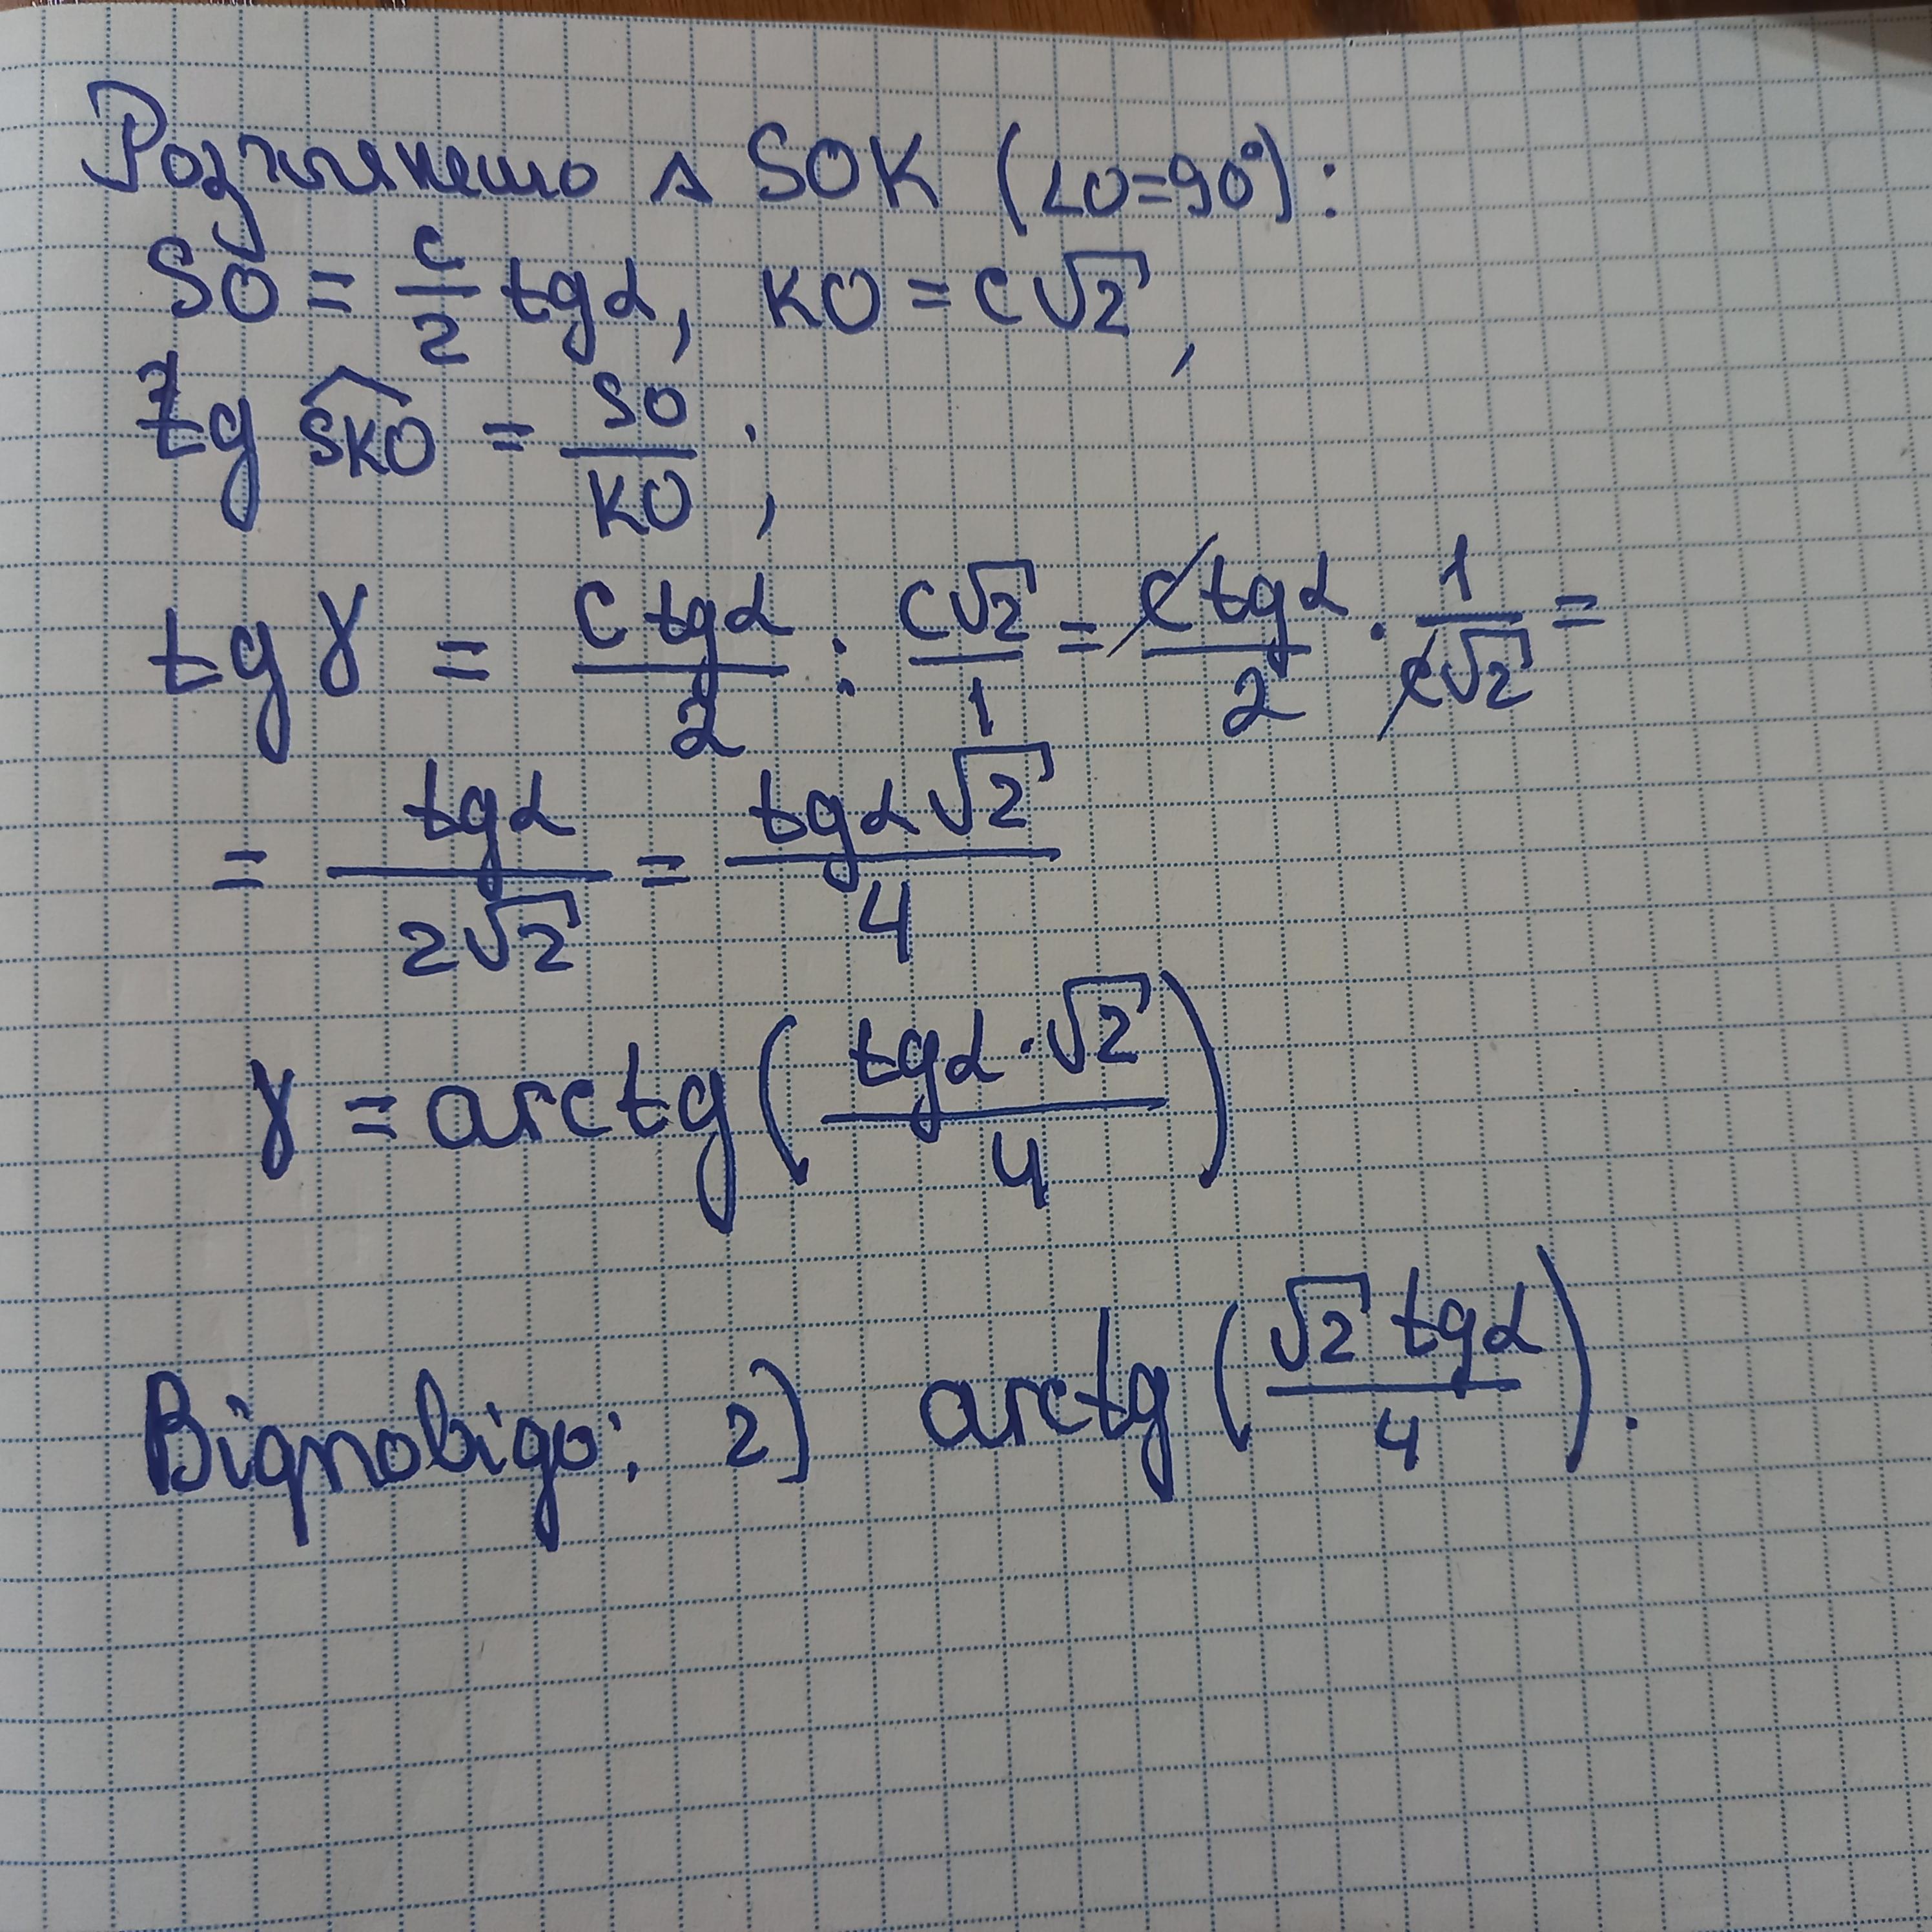 Розглянемо △ SOK (∠O=90°):
SO = c/2 tgα, KO = c√2,
tg SKO^ = SO/KO ;
tg γ = c tgα/2 : c√2/1 = c tgα/2 · 1/c√2 =
= tgα/2√2 = tgα√2/4
γ = arctg(tgα·√2/4)
Відповідь: 2) arctg(√2 tgα/4).